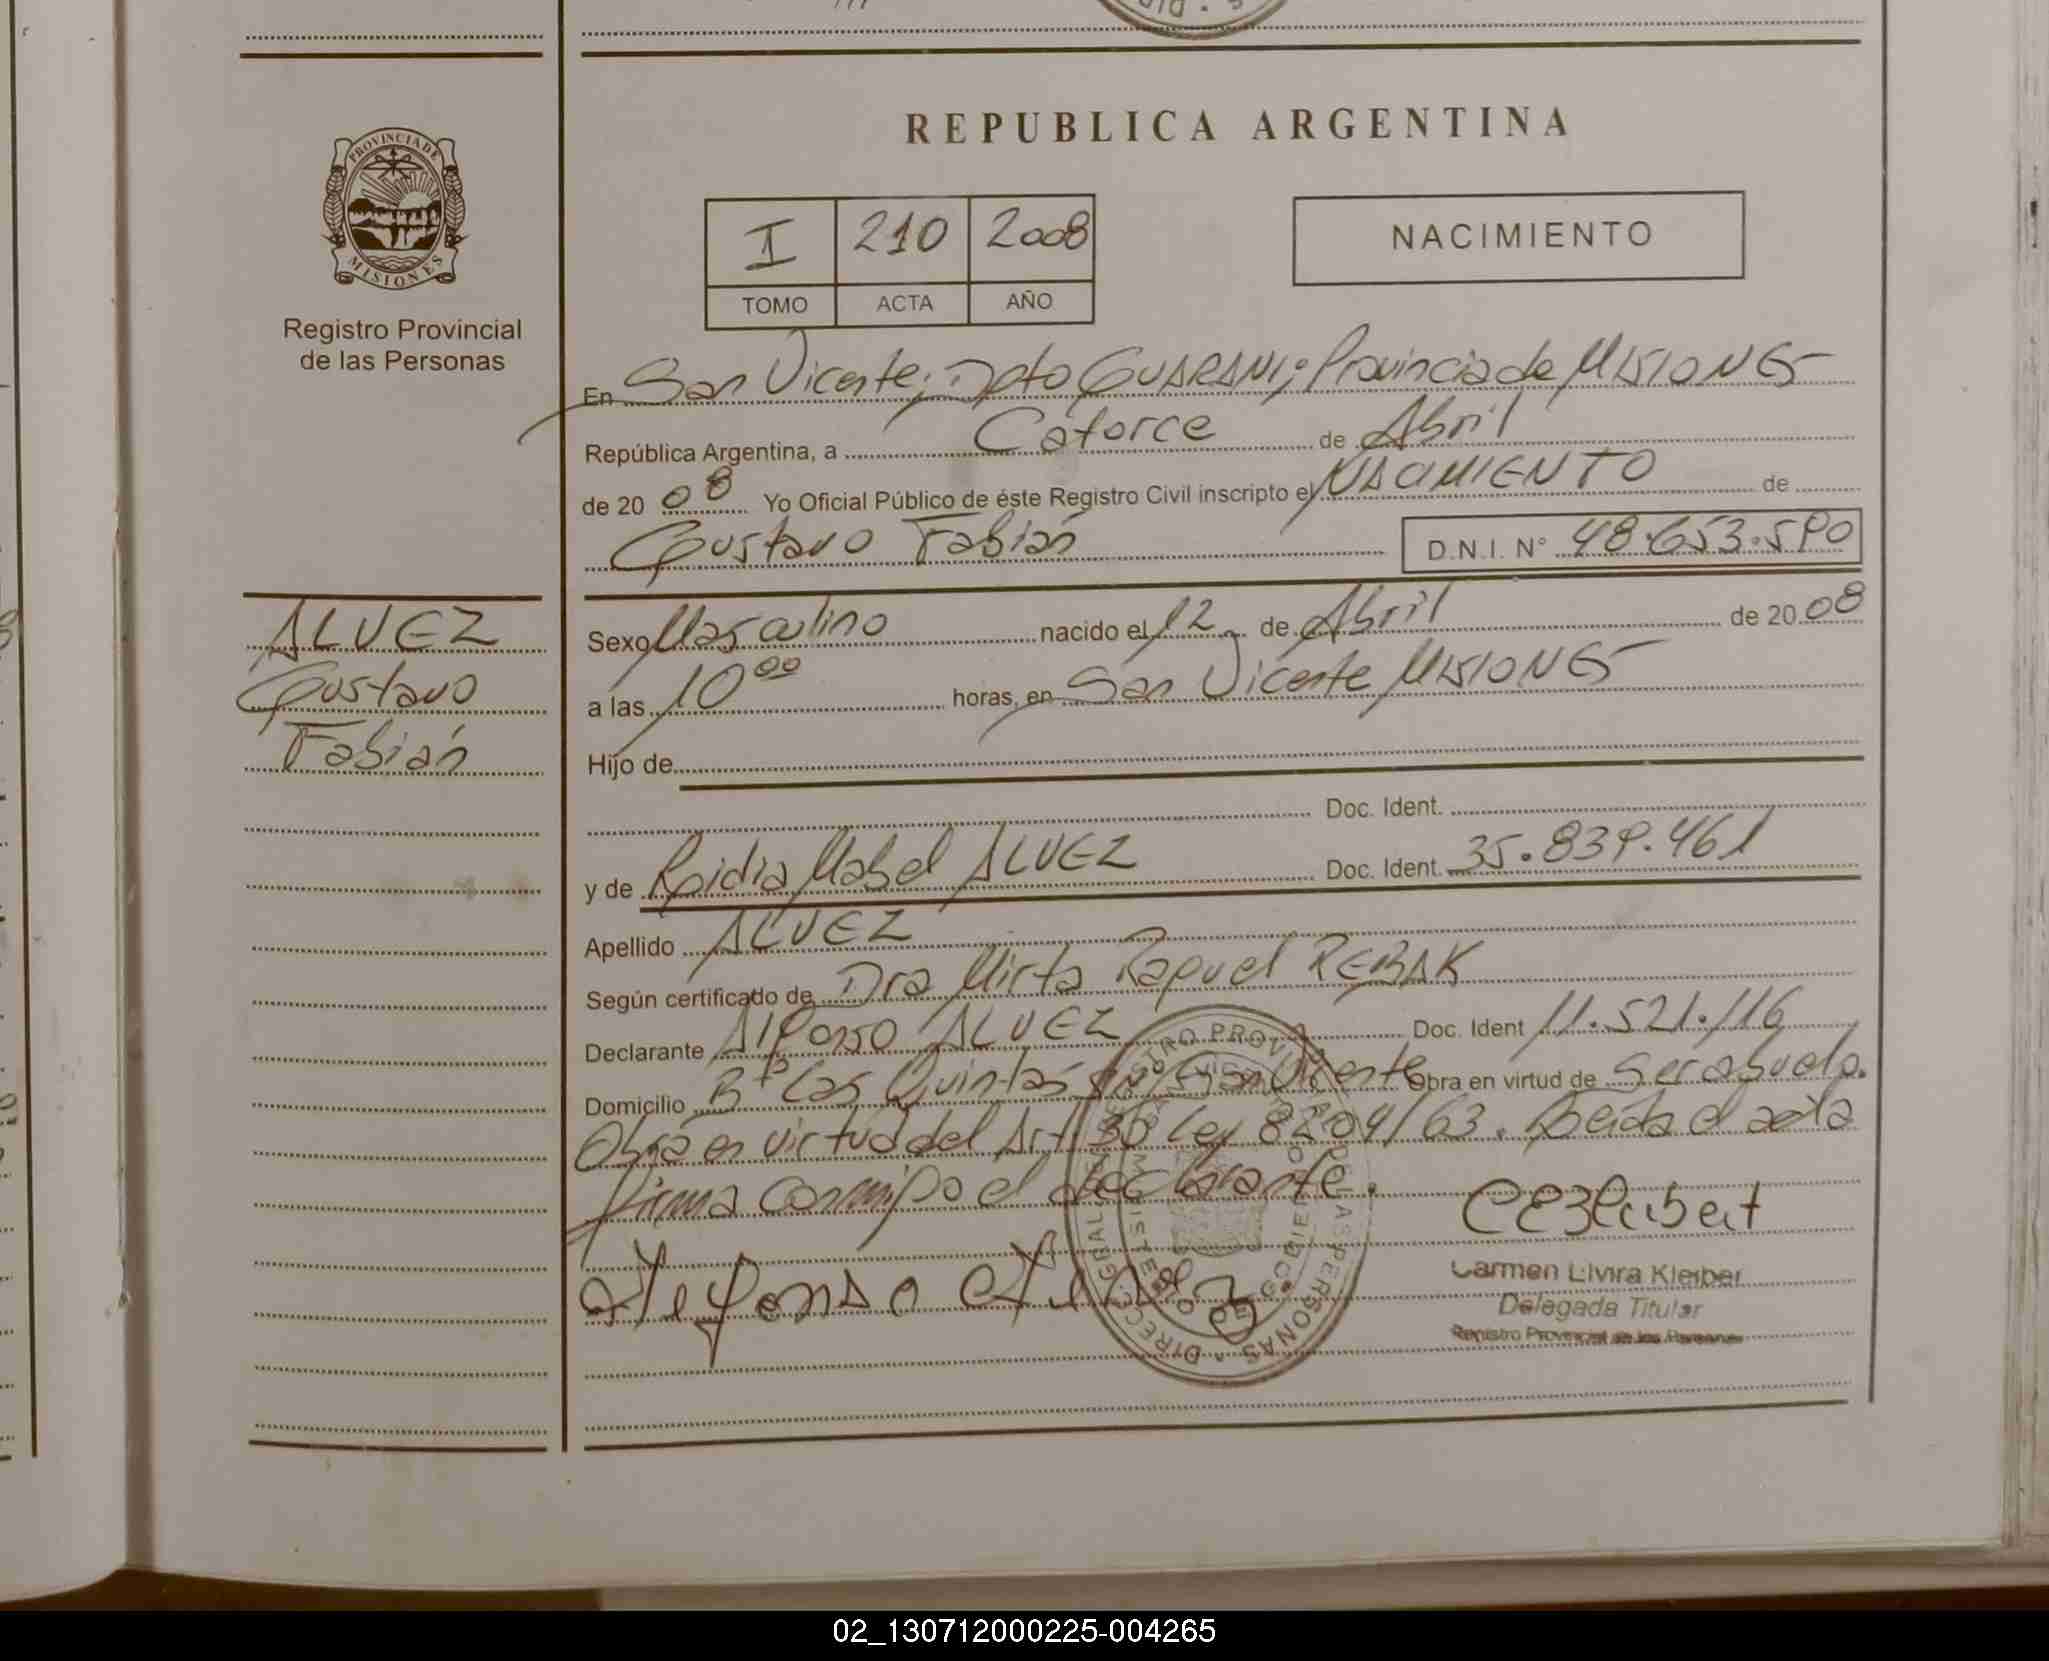 REPUBLICA ARGENTINA
PROVINCIA DE MISIONES
Registro Provincial
de las Personas
I 210 2008
TOMO ACTA AÑO
NACIMIENTO
En San Vicente; Dpto GUARANI; Provincia de MISIONES
República Argentina, a Catorce de Abril
de 20 08 Yo Oficial Público de éste Registro Civil inscripto el NACIMIENTO de
Gustavo Fabián D.N.I. N° 48.653.590
ALVEZ
Gustavo
Fabián
Sexo Masculino nacido el 12 de Abril de 20 08
a las 10 00 horas, en San Vicente MISIONES
Hijo de
Doc. Ident.
y de Mabel ALVEZ Doc. Ident. 35.839.461
Apellido ALVEZ
Según certificado de Dra Mirta Raquel REBAK
Declarante ALVEZ Doc. Ident 11.521.116
Domicilio B° Las Quintas San Vicente Obra en virtud de Ser abuelo.
Obra en virtud del Art. Ley 8204/63. Leida el acta
firma conmigo el declarante.
Carmen Elvira Kleiber
Delegada Titular
Registro Provincial de las Personas
02_130712000225-004265